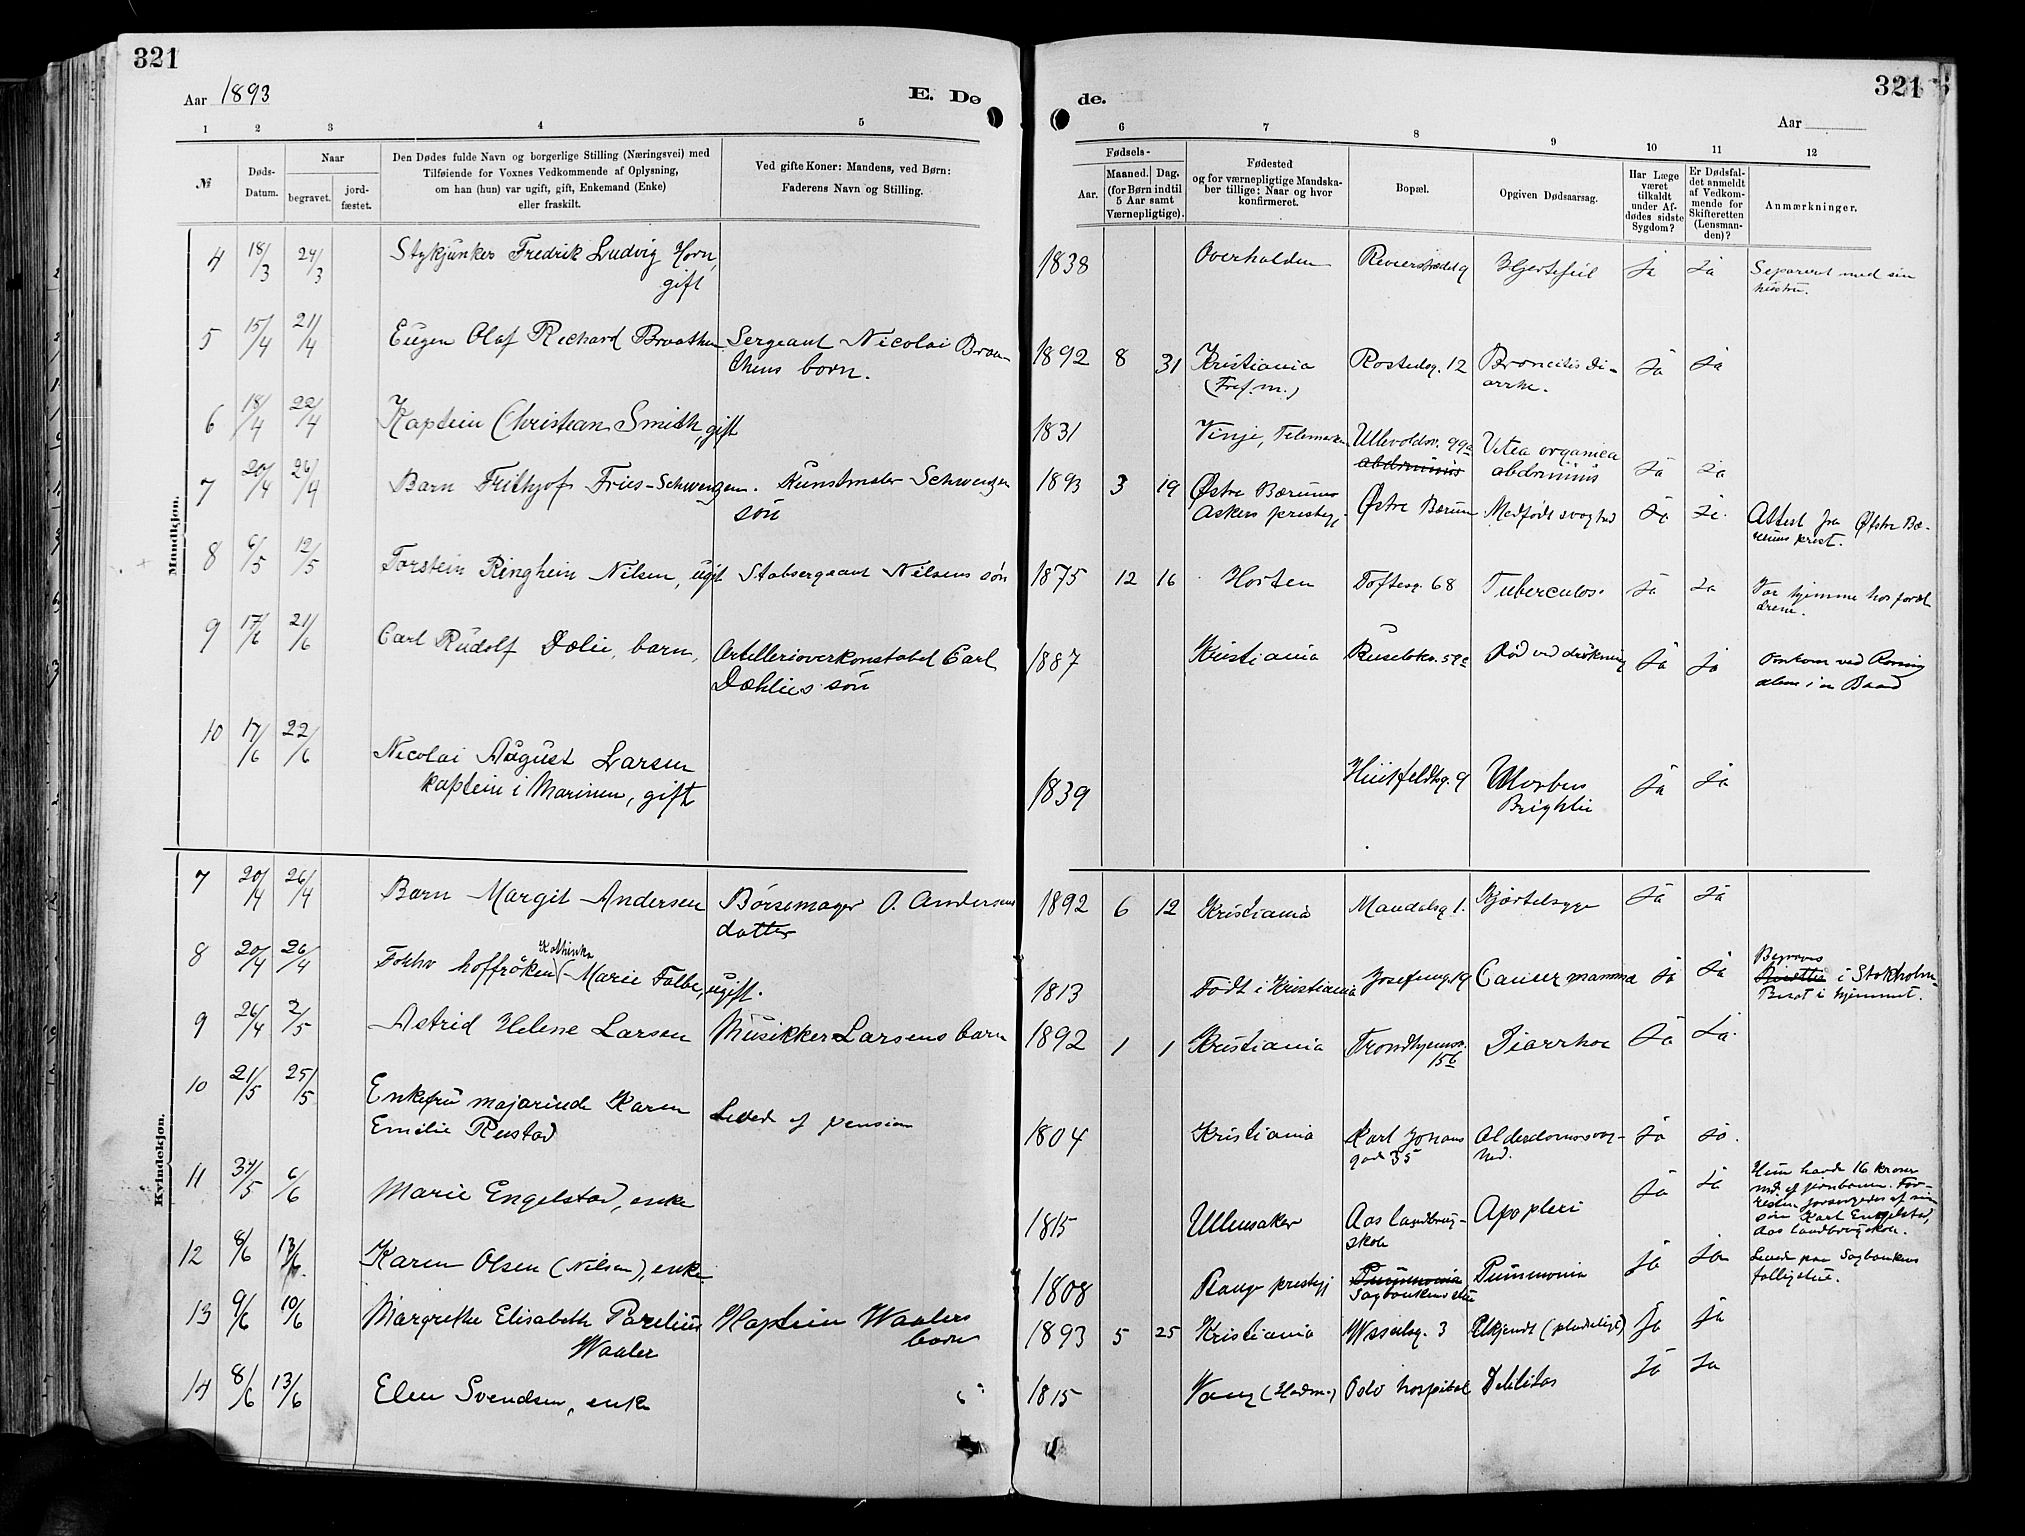 321
Aar 1893
E. De
1 2 3 4 5
№
Døds-Datum.
Naar
begravet.
jord-fæstet.
Den Dødes fulde Navn og borgerlige Stilling (Næringsvei) med
Tilføiende for Voxnes Vedkommende af Oplysning,
om han (hun) var ugift, gift, Enkemand (Enke)
eller fraskilt.
Ved gifte Koner: Mandens, ved Børn:
Faderens Navn og Stilling.
Mandkjøn.
4 18/3 24/3 Stykjunker Fredrik Ludvig Horn,
gift
5 15/4 21/4 Eugen Olaf Richard Braathen Sergeant Nicolai Braa-
thens barn.
6 18/4 22/4 Kaptein Christian Smith, gift
7 20/4 26/4 Barn Frithjof Fries-Schwenzen. Kunstmaler Schwenzen
søn
8 6/5 12/5 Torstein Ringheim Nilsen, ugift Stabsergeant Nilsens søn
9 17/6 21/6 Carl Rudolf Dælie, barn, Artillerioverkonstabel Carl
Dæhlies søn
10 17/6 22/6 Nicolai August Larsen
kaptein i Marinen, gift
Kvindekjøn.
7 20/4 26/4 Barn Margit Andersen Børsemager O. Andersens
datter
8 20/4 26/4 Kathinka
Marie Falbe, ugift.
9 26/4 2/5 Astrid Helene Larsen Musikker Larsens barn
10 21/5 25/5 Enkefru majorinde Karen Levede af pension
Emilie Rustad
11 31/5 6/6 Marie Engelstad, enke
12 8/6 13/6 Karen Olsen (Nilsen), enke
13 9/6 10/6 Margrethe Elisabeth Parelius Kaptein Waalers
Waaler barn
14 8/6 13/6 Elen Svendsen, enke
de.
321
Aar
6 7 8 9 10 11 12
Fødsels-
Aar.
Maaned. Dag.
(for Børn indtil
5 Aar samt
Værnepligtige).
Fødested
og for værnepligtige Mandska-
ber tillige: Naar og hvor
konfirmeret.
Bopæl.
Opgiven Dødsaarsag.
Har Læge
været
tilkaldt
under Af-
dødes sidste
Sygdom?
Er Dødsfal-
det anmeldt
af Vedkom-
mende for
Skifteretten
(Lensman-
den)?
Anmærkninger.
1838 Overhalden Revierstrædet 9 Hjertefeil ja ja Separeret med sin
hustru.
1892 8 31 Kristiania Rostedsg. 12 Broncitis Di-
arrhe. Ja Ja
(Tref. m.)
1831 Vinje, Telemarken Ullevoldsv. 99a Vitea organica
abdominis abdominis Ja Ja
1893 3 19 Østre Bærums
Askers prestegj. Østre Bærum Medfødt svaghed Ja Ja. Attest fra Østre Bæ-
rums prest.
1875 12 16 Horten Toftesg. 68 Tuberculos. Ja Ja Var hjemme hos foræl
drene.
1887 Kristiania Ruseløkv. 59c Død ved drukning Ja Ja Omkom ved Roning
alene i en Baad
1839 Huitfeldtsg. 9 Morbus
Brightii Ja Ja
1892 6 12 Kristiania Mandalsg 1. Kjertelsyge Ja Ja
1813 Født i Kristiania Josefinesg. 19 Cancer mamma Ja Ja Begraves
i Stokholm
Bisat i hjemmet.
1892 1 1 Kristiania Trondhjemsv.
15b Diarrhoe Ja Ja.
1804 Kristiania Karl Johans
gade 35 Alderdomssvag-
hed. Ja Ja.
1815 Ullensaker Aas landbrug-
skole Apoplexi Ja Ja Hun havde 16 kroner
md. af jernbanen. For-
resten forsørgedes af sin
søn Karl Engelstad,
Aas landbrugskole.
1808 Ranes prestegj Pneumonia
Sagbankens stue Pneumonia Ja Ja Levede paa Sagbankens
fattigstue.
1893 5 25 Kristiania Wesselsg. 3 Ukjendt (pludseligt) Ja Ja
1815 Vang (Hedm.) Oslo hospital Debilitas Ja Ja